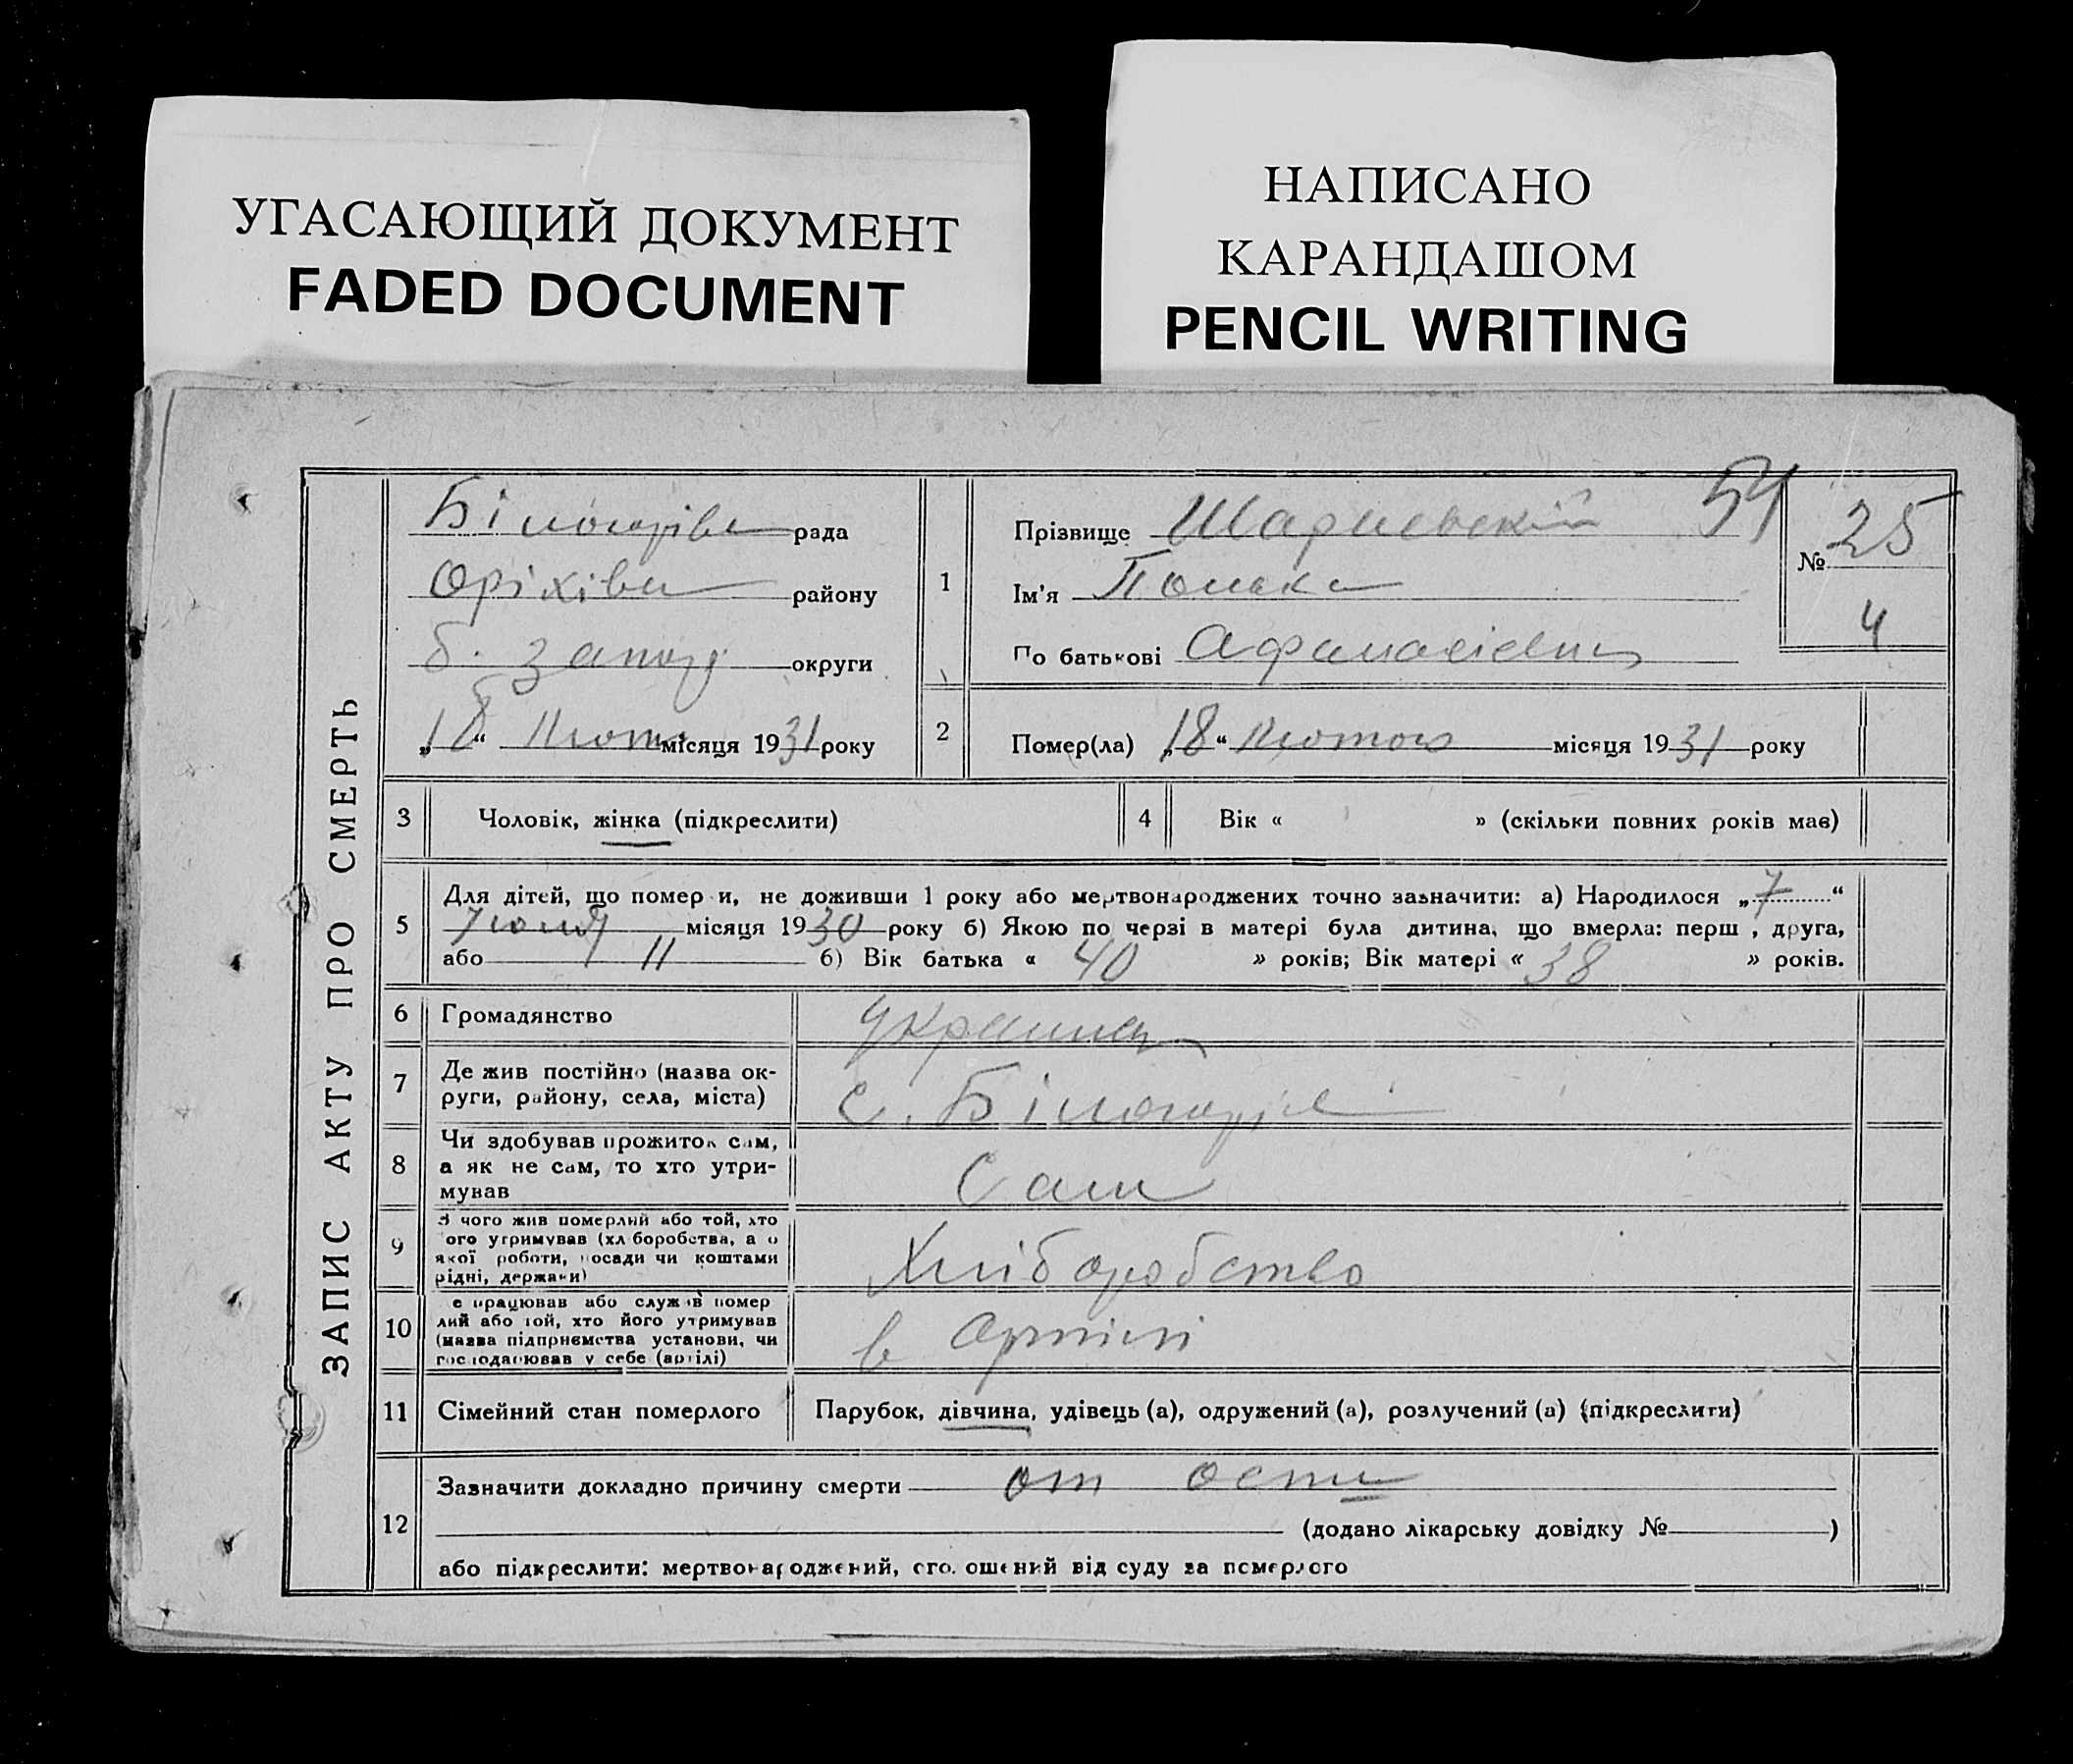 УГАСАЮЩИЙ ДОКУМЕНТ
FADED DOCUMENT
НАПИСАНО
КАРАНДАШОМ
PENCIL WRITING
ЗАПИС АКТУ ПРО СМЕРТЬ
рада
Оріхівськ району
б. Запоріз округи
„18“ Лютого місяця 1931 року
1
Прізвище 54
Ім'я
По батькові
№ 25
4
2
Помер(ла) „18“ Лютого місяця 1931 року
3 Чоловік, жінка (підкреслити)
4 Вік « » (скільки повних років мав)
5
Для дітей, що помер и, не доживши 1 року або мертвонароджених точно зазначити: а) Народилося „7“
місяця 1930 року б) Якою по черзі в матері була дитина, що вмерла: перш , друга,
або 11 б) Вік батька « 40 » років; Вік матері « 38 » років.
6 Громадянство
7 Де жив постійно (назва ок-
руги, району, села, міста) с.
8 Чи здобував прожиток сам,
а як не сам, то хто утри-
мував Сам
9 З чого жив померлий або той, хто
ого утримував (хл боробства, а о
якої роботи, посади чи коштами
рідні, держави) Хліборобство
10 е працював або служ в помер
лий або той, хто його утримував
(назва підприємства установи, чи
господарював у себе (артілі) в Артілі
11 Сімейний стан померлого Парубок, дівчина, удівець (а), одружений (а), розлучений (а) (підкреслити)
12
Зазначити докладно причину смерти от
(додано лікарську довідку № )
або підкреслити: мертвонароджений, оголошений від суду за померлого